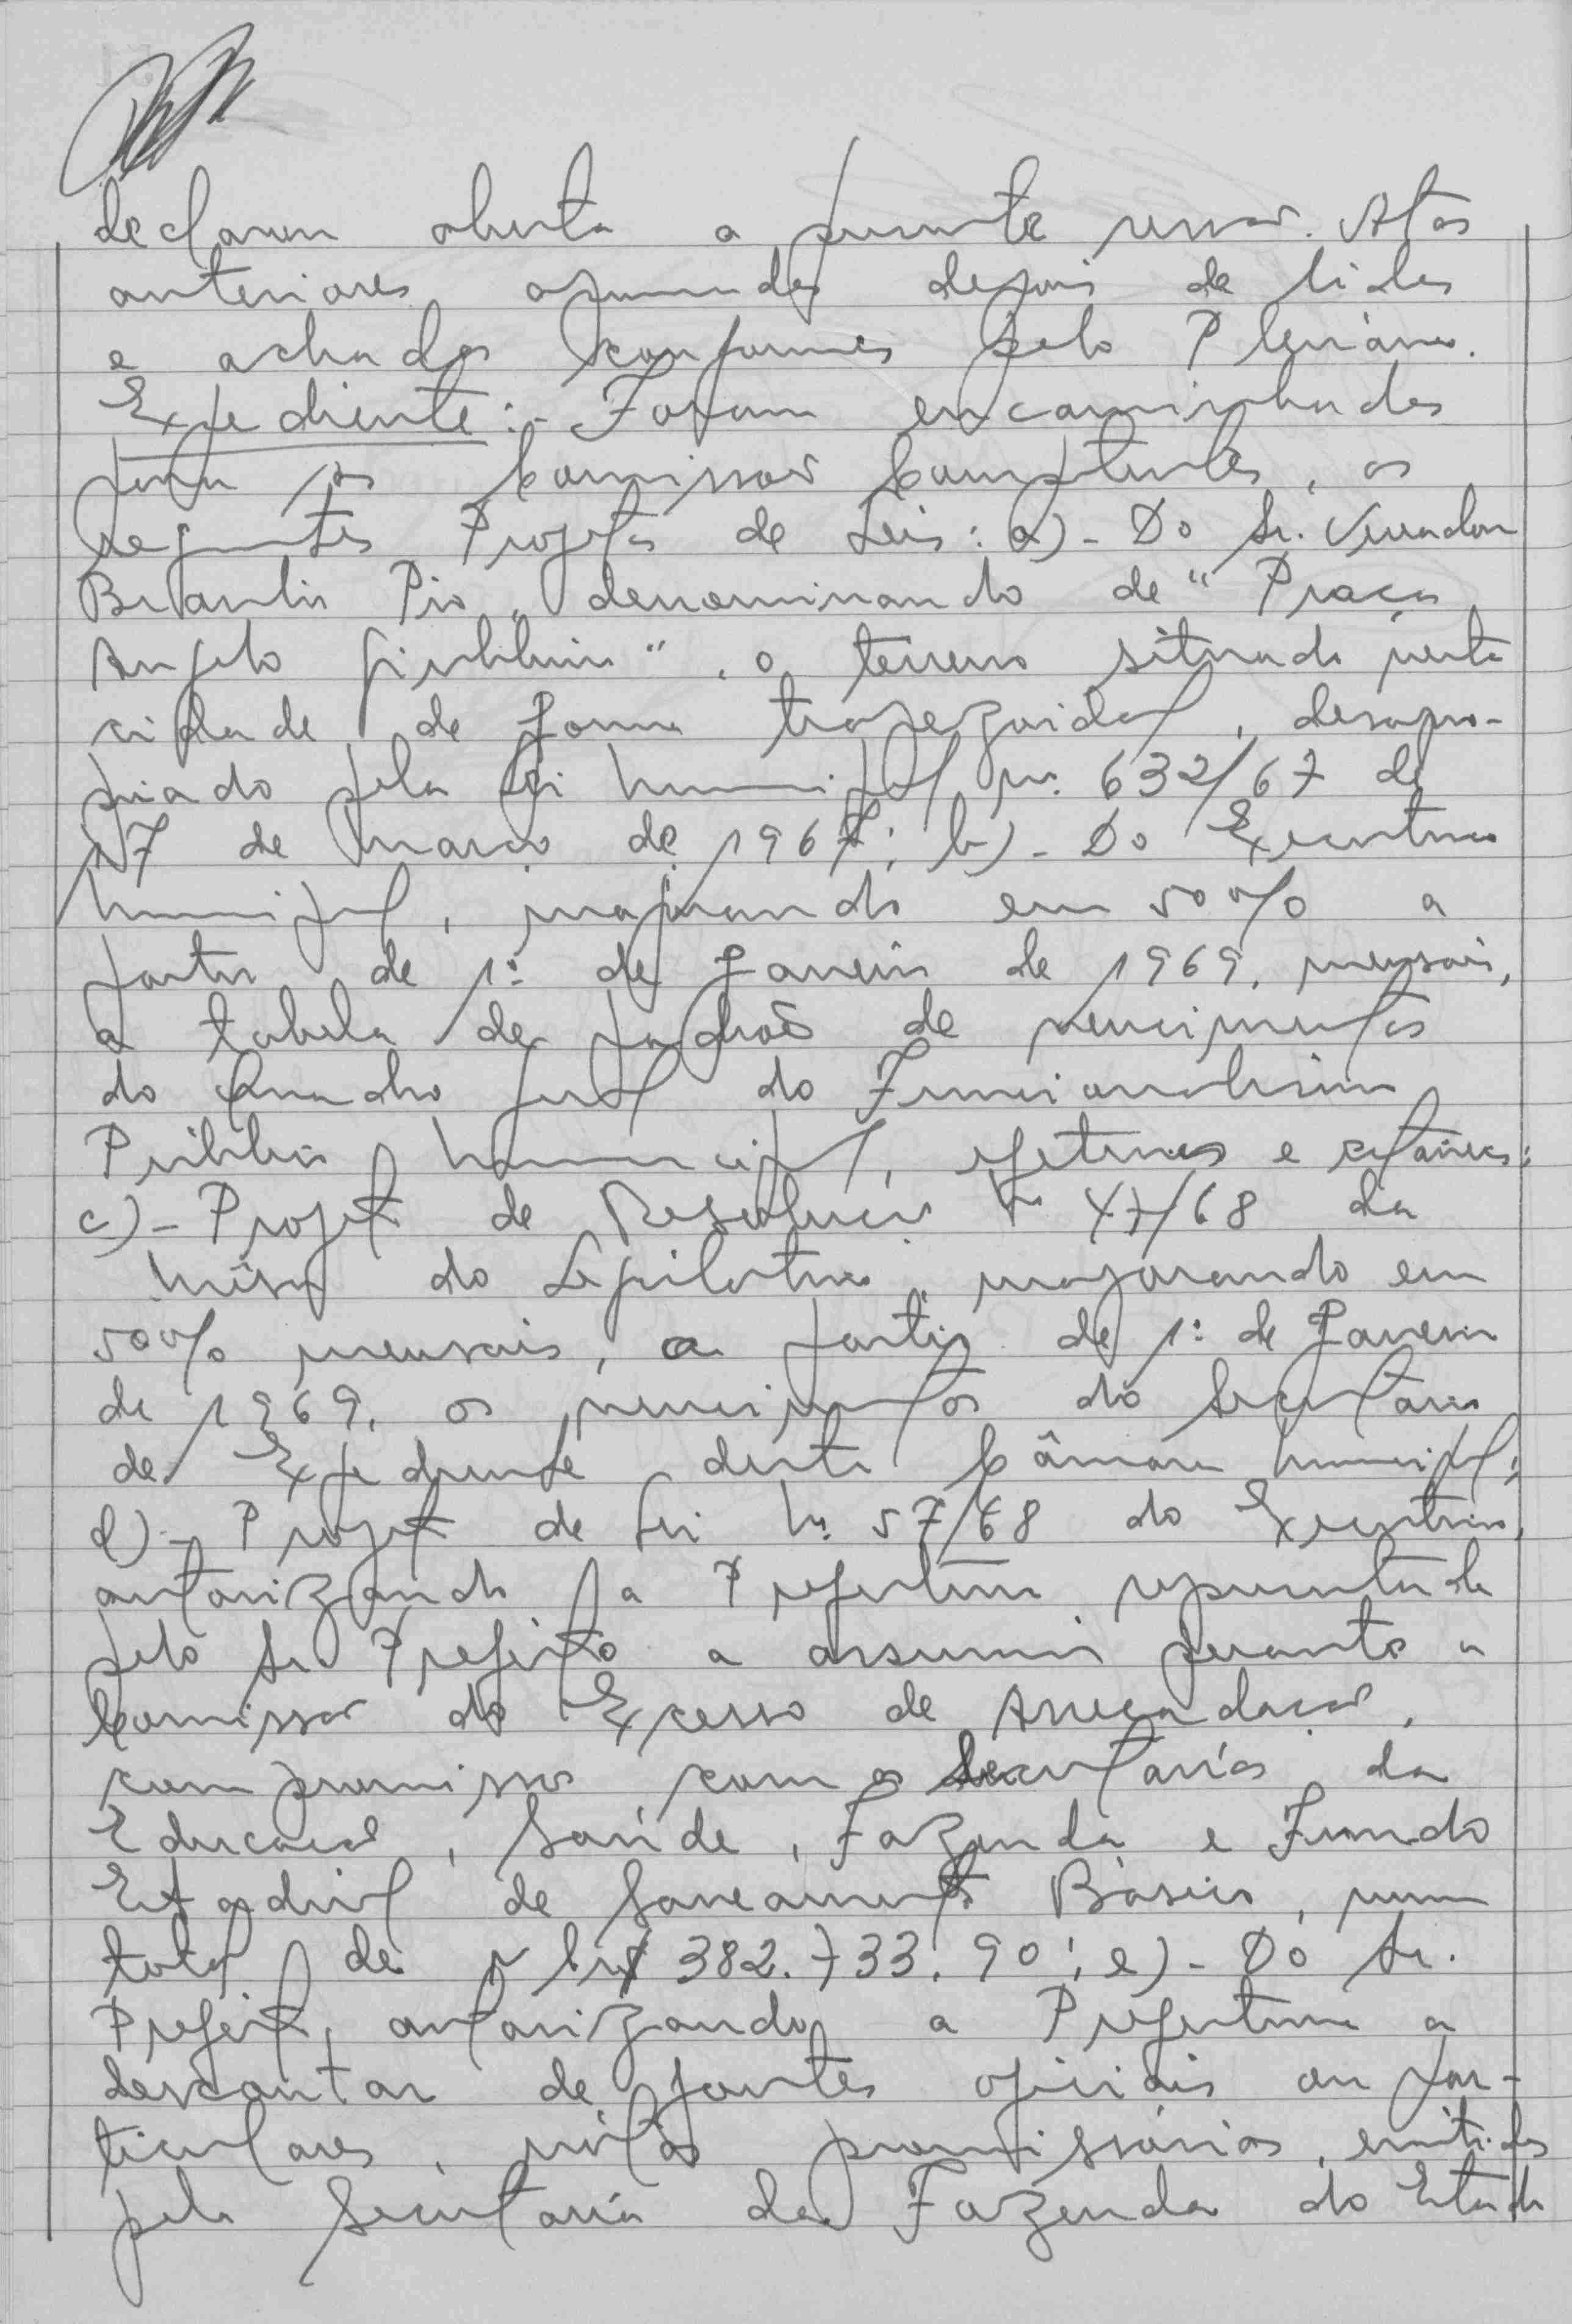 declarou aberta a presente sessão. Atas
anteriores aprovadas depois de lidas
e achadas conformes pelo Plenário.
Expediente:- Foram encaminhados
para as Comissões Competentes, os
seguintes Projetos de Leis: a)- Do Sr. Vereador
Pio, denominando de "Praça
Angelo", o terreno situado nesta
cidade de forma trapezoidal, desapro-
priado pela Lei Municipal nº 632/67 de
17 de Março de 1967; b)- Do Executivo
Municipal, majorando em 50% a
partir de 1º de Janeiro de 1969, mensais,
a tabela de padrões de vencimentos
do Quadro Geral do Funcionalismo
Público Municipal, efetivos e estáveis;
c)- Projeto de Resolução Nº /68 da
Mesa do Legislativo, majorando em
50% mensais, a partir de 1º de Janeiro
de 1969, os vencimentos do Secretário
de Expediente desta Câmara Municipal;
d)- Projeto de Lei Nº 57/68 do Executivo,
autorizando a Prefeitura representada
pelo Sr Prefeito a assumir perante a
Comissão do Excesso de Arrecadação,
compromisso com as Secretarias da
Educação, Saúde, Fazenda e Fundo
Estadual de Saneamento Básico, num
total de NCr$ 382.733,90; e)- Do Sr.
Prefeito, autorizando a Prefeitura a
descontar de fontes oficiais ou par-
ticulares, notas promissórias, emitidas
pela Secretaria da Fazenda do Estado